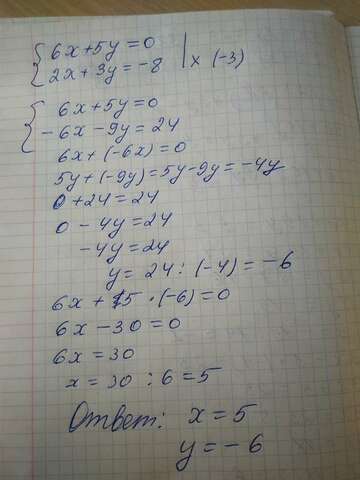 6x+5y=0
2x+3y=-8 | x (-3)
6x+5y=0
-6x-9y=24
6x+(-6x)=0
5y+(-9y)=5y-9y=-4y
0+24=24
0-4y=24
-4y=24
y=24:(-4)=-6
6x+5·(-6)=0
6x-30=0
6x=30
x=30:6=5
Ответ: x=5
y=-6